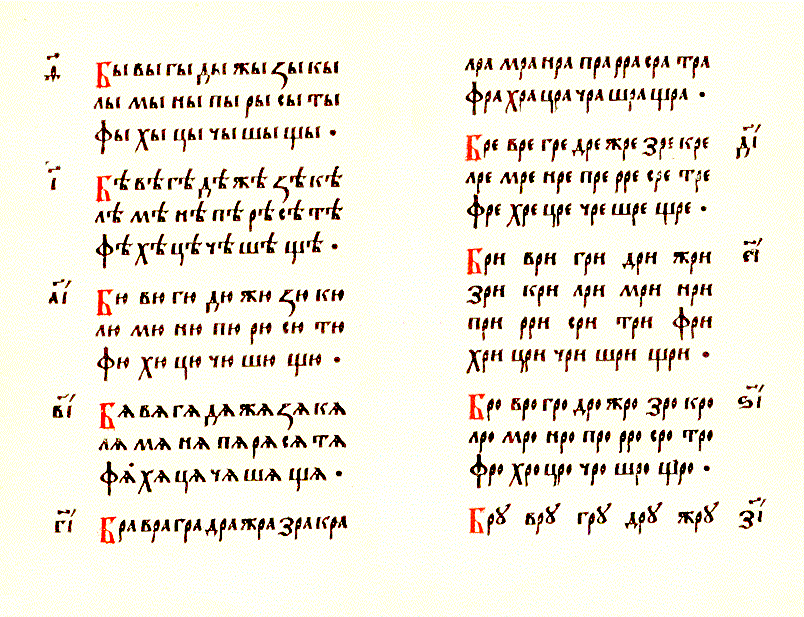 ѳ҃ Бы вы гы ды жы ꙁы кы
лы мы ны пы ры сы ты
фы хы цы чы шы щы .
і҃ Бѣ вѣ гѣ дѣ жѣ ꙁѣ кѣ
лѣ мѣ нѣ пѣ рѣ сѣ тѣ
фѣ хѣ цѣ чѣ шѣ щѣ .
а҃і Бю вю гю дю жю ꙁю кю
лю мю ню пю рю сю тю
фю хю цю чю шю щю .
в҃і Бѧ вѧ гѧ дѧ жѧ ꙁѧ кѧ
лѧ мѧ нѧ пѧ рѧ сѧ тѧ
фѧ хѧ цѧ чѧ шѧ щѧ .
г҃і Бра вра гра дра жра зра кра
лра мра нра пра рра сра тра
фра хра цра чра шра щра .
Бре вре гре дре жре зре кре д҃і
лре мре нре пре рре сре тре
фре хре цре чре шре щре .
Бри ври гри дри жри є҃і
зри кри лри мри нри
при рри сри три фри
хри цри чри шри щри .
Бро вро гро дро жро зро кро ѕ҃і
лро мро нро про рро сро тро
фро хро цро чро шро щро .
Брꙋ врꙋ грꙋ дрꙋ жрꙋ з҃і